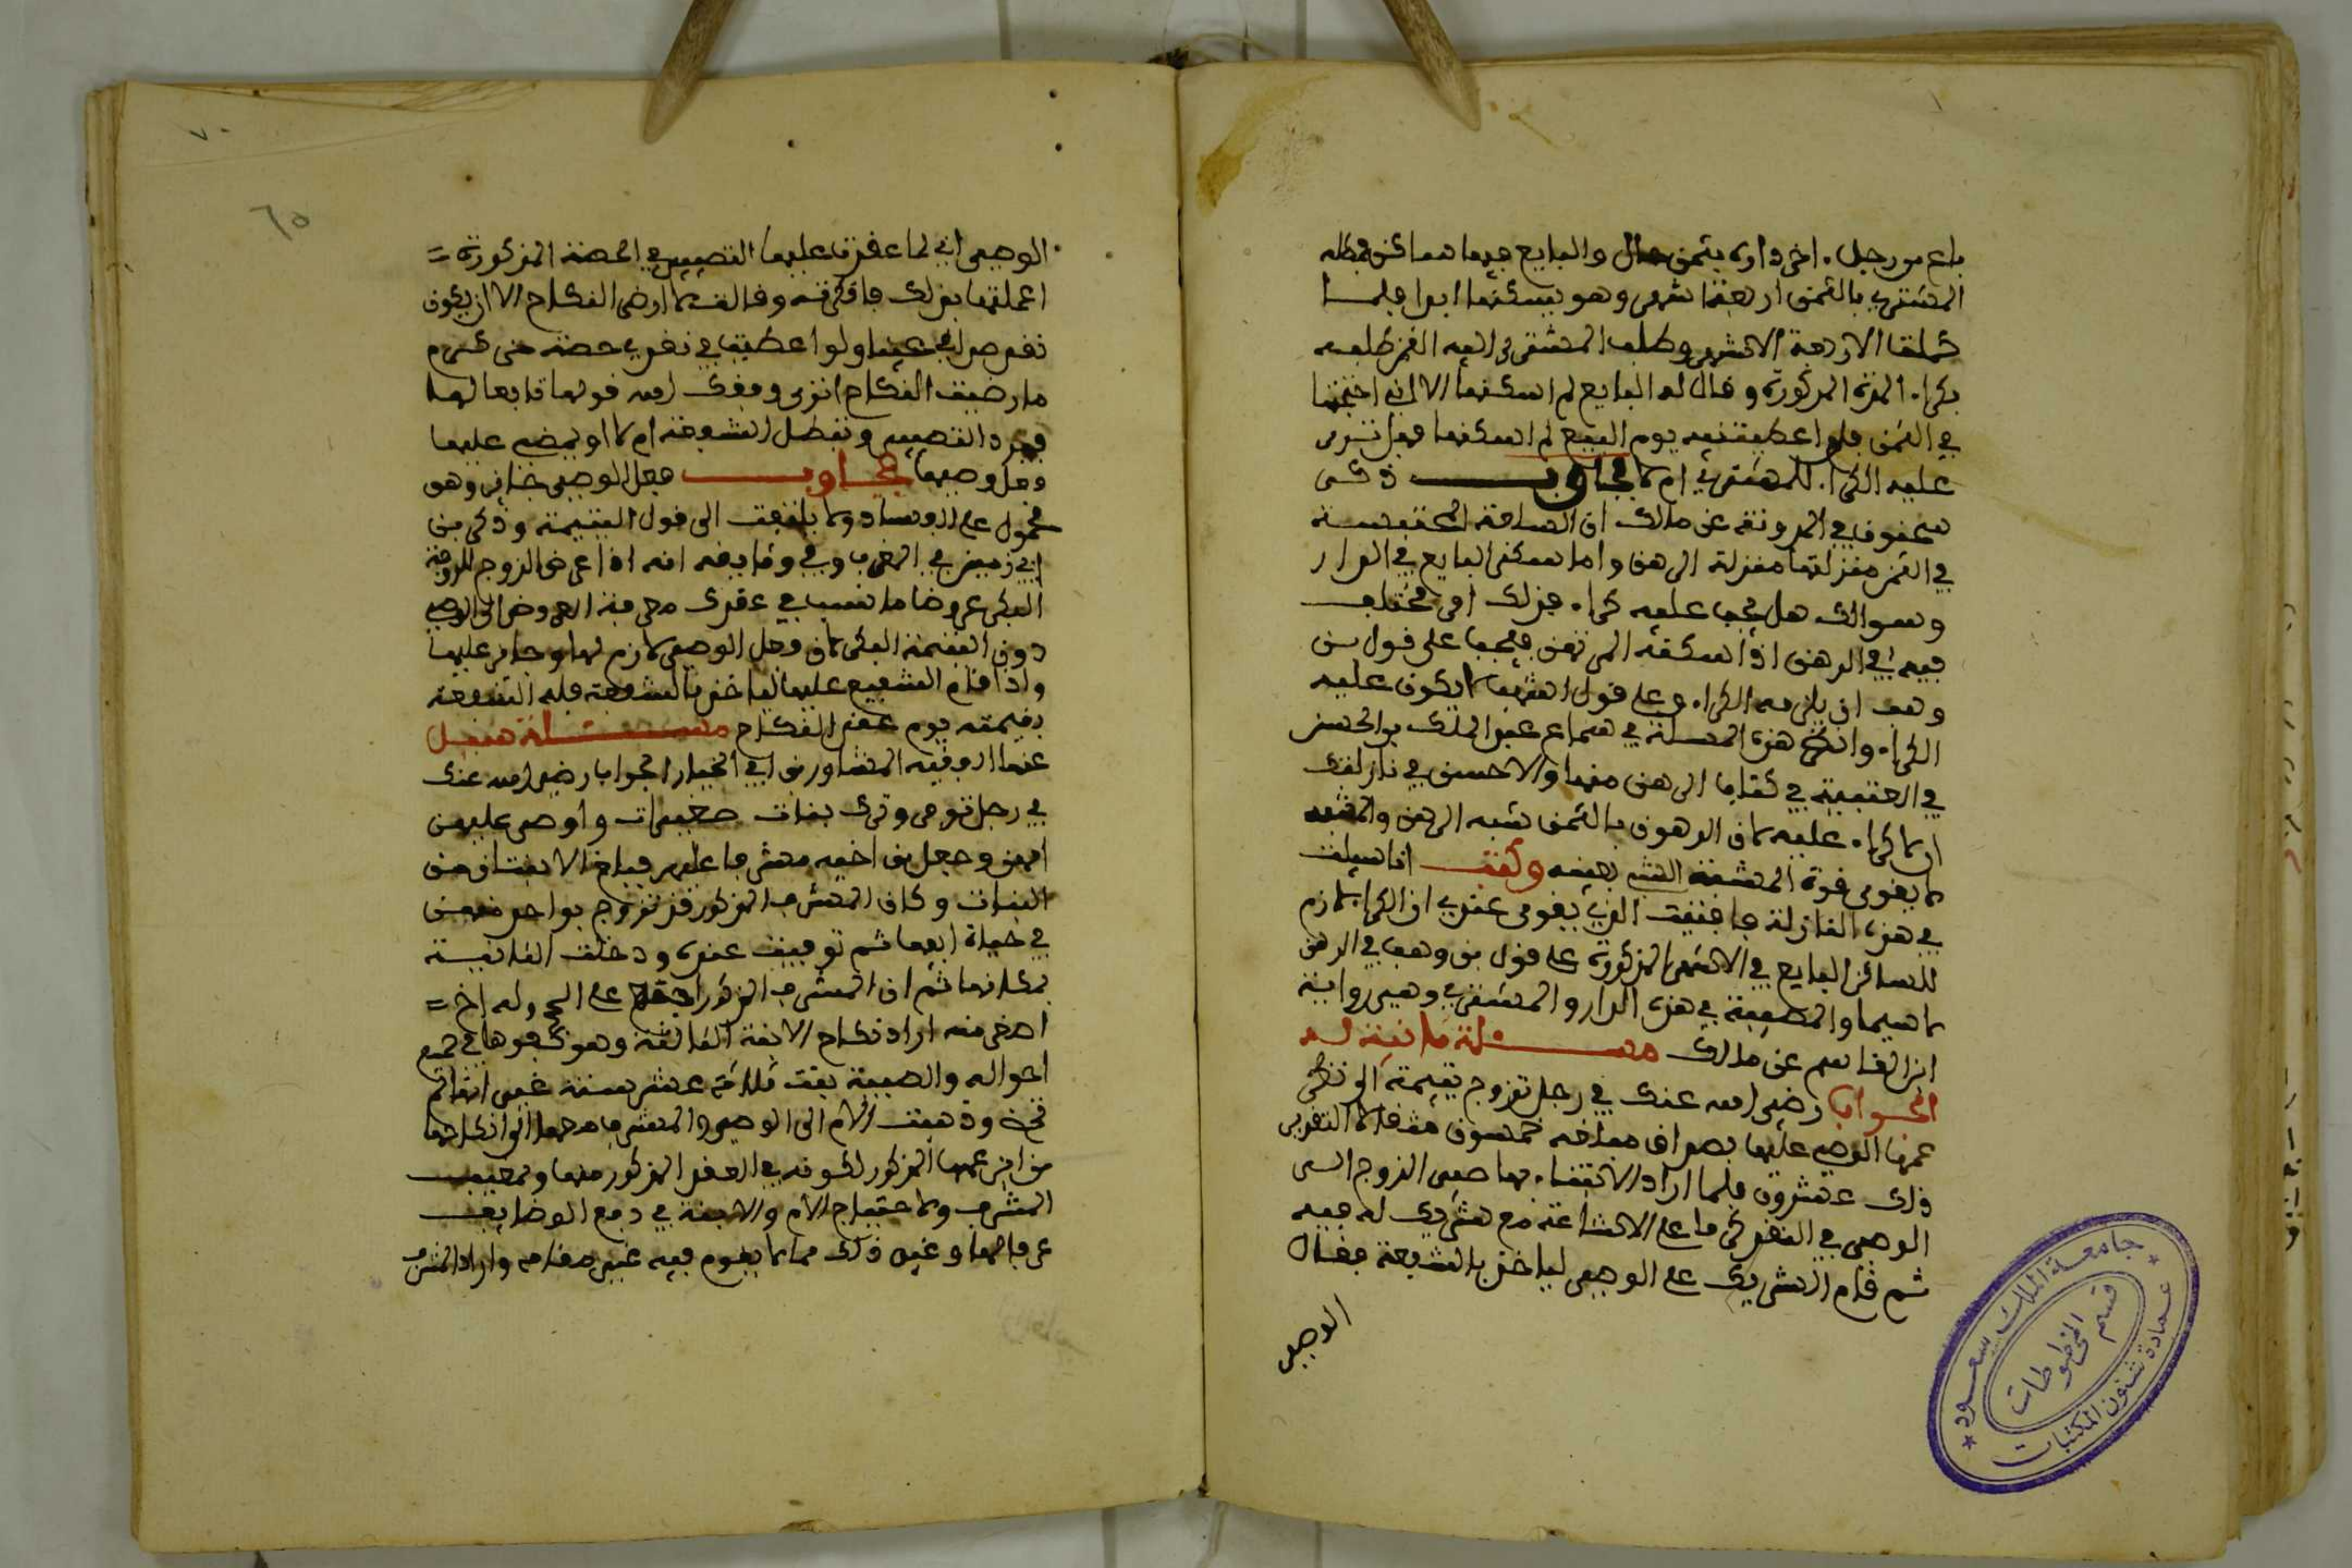 باع من رجل اخر داره بثمن حال والبايع فيها ساكن فمطله
المشتري بالثمن اربعة اشهر وهو يسكنها ابدا فلما
كملت الاربعة الاشهر وطلب المشتري اليه الثمن طلبه
بكراء المدة المذكورة وقال له البايع لم اسكنها الا لاني احبتها
في الثمن فلو اعطيتنيه يوم البيع لم اسكنها فهل ترى
عليه الكراء للمشتري ام لا فجاوب ذكر
سحنون في المدونة عن مالك ان السلعة المحتبسة
في الثمن منزلتها منزلة الرهن واما سكنى البايع في الدار
وسوالك هل يجب عليه كراء فذلك امر مختلف
فيه في الرهن اذا اسكنه المرتهن فيجب على قول بن
وهب ان يلزمه الكراء وعلى قول اشهب لا يكون عليه
الكراء وانظر هذه المسلة في سماع عبد الملك بن الحسن
في العتبية في كتاب الرهن منها والاحسن في نازلتك
ان لا كراء عليه لان الرهون بالثمن شبه الرهن والمشبه
لا يقوى قوة المشبه به وكنت انا سيلت
في هذه النازلة فافتيت الذي يقوى عندي ان الكراء لازم
للساكن البايع في الاشهر المذكورة على قول بن وهب في الرهن
لا سيما والمصيبة في هذه الدار والمشتري وهي رواية
ابن القاسم عن مالك مسلة ثانية له
الجواب رضي الله عنك في رجل تزوج يتيمة الى نظر
عمها الوصي عليها بصداق مبلغه خمسون مثقالا النقد من
ذلك عشرون فلما اراد الابتناء بها صير الزوج الى
الوصي في النقد كرما على الاشاعة مع شريك له فيه
ثم قام الشريك على الوصي لياخذ بالشفعة فقال
الوصي
٧٠
٦٥
الوصي اني لما عقدت عليها التصيير في الحصة المذكورة
اعلمتها بذلك فانكرته وقالت لا ارضى النكاح الا ان يكون
نقد صداقي عينا ولو اعطيت في نقدي حصة من كرم
ما رضيت النكاح انرى وفقك الله قولها تابعا لها
فيرد التصيير وتبطل الشفعة ام لا او يمضي عليها
فعل وصيها فجاوب فعل الوصي جائز وهو
محمول على السداد ولا يلتفت الى قول اليتيمة وذكر بن
ابي زمنين في المغرب وفي وثايقه انه اذا اعرض الزوج للزوجة
البكر عروضا ما نسب في عقدك معرفة العروض الى الوصي
دون اليتيمة البكر لان فعل الوصي لازم لها وجائز عليها
واذا قام الشفيع عليها لياخذ بالشفعة فله الشفعة
بقيمته يوم عقد النكاح مسلة سئل
عنها الفقيه المشاور بن ابي الخيار الجواب رضي الله عنك
في رجل توفي وترك بنات صغيرات واوصى عليهن
امهن وجعل بن اخيه مشرفا على فباع الا بنتان من
البنات وكان المشرف المذكور قد تزوج بواحد منهن
في حياة ابيها ثم توفيت عنده ودخلت الثانية
مكانها ثم ان المشرف المذكور على الحج وله اخ
اصغر منه اراد نكاح الابنة الثالثة وهو كفؤها في جميع
احواله والصبية بنت ثلاثة عشر سنة غير انها لم
تحض وذهبت الام الى الوصي والمشرف انكاحها
من ابن عمها المذكور لكونه في العقد المذكور منها ولمغيب
المشرف ولاحتياج الام والابنة في دفع الوضايف
عن مالها وغير ذلك مما لا يقوم فيه غير مقامه واراد المشرف
جامعة الملك سعود
قسم المخطوطات
عمادة شئون المكتبات